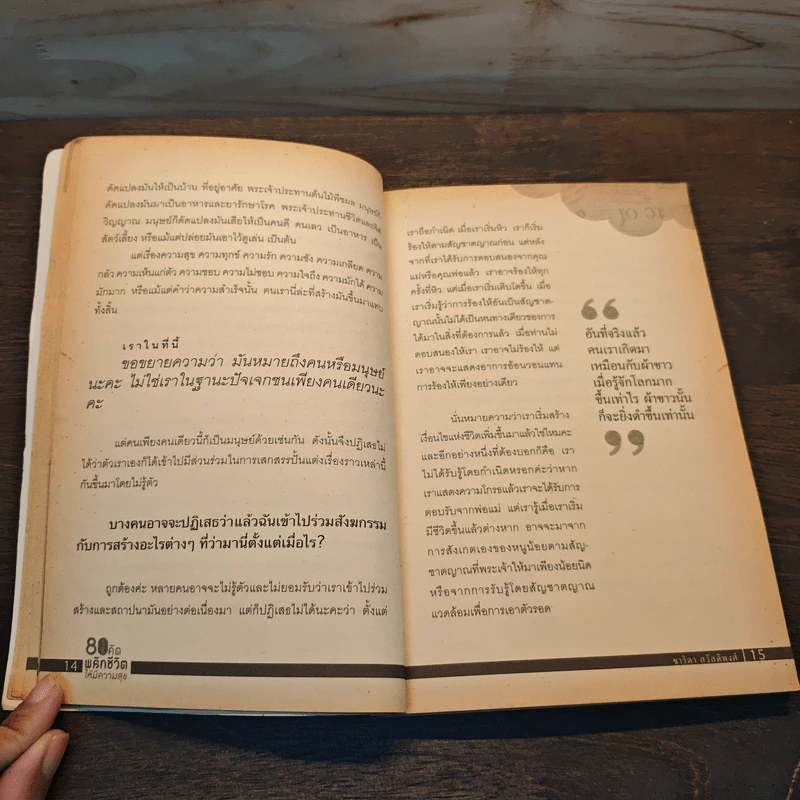 ดัดแปลงมันให้เป็นบ้าน ที่อยู่อาศัย พระเจ้าประทานต้นไม้พืชผล มนุษย์ก็
ดัดแปลงมันมาเป็นอาหารและยารักษาโรค พระเจ้าประทานชีวิตและจิต
วิญญาณ มนุษย์ก็ดัดแปลงมันเสียให้เป็นคนดี คนเลว เป็นอาหาร เป็น
สัตว์เลี้ยง หรือแม้แต่ปล่อยมันเอาไว้ดูเล่น เป็นต้น
แต่เรื่องความสุข ความทุกข์ ความรัก ความชัง ความเกลียด ความ
กลัว ความเห็นแก่ตัว ความชอบ ความไม่ชอบ ความใจถึง ความมักได้ ความ
มักมาก หรือแม้แต่คำว่าความสำเร็จนั้น คนเรานี่ล่ะที่สร้างมันขึ้นมาแทบ
ทั้งสิ้น
เราในที่นี้
ขอขยายความว่า มันหมายถึงคนหรือมนุษย์
นะคะ ไม่ใช่เราในฐานะปัจเจกชนเพียงคนเดียวนะ
คะ
แต่คนเพียงคนเดียวนี้ก็เป็นมนุษย์ด้วยเช่นกัน ดังนั้นจึงปฏิเสธไม่
ได้ว่าตัวเราเองก็ได้เข้าไปมีส่วนร่วมในการเสกสรรปั้นแต่งเรื่องราวเหล่านี้
กันขึ้นมาโดยไม่รู้ตัว
บางคนอาจจะปฏิเสธว่าแล้วฉันเข้าไปร่วมสังฆกรรม
กับการสร้างอะไรต่างๆ ที่ว่ามานี่ตั้งแต่เมื่อไร?
ถูกต้องค่ะ หลายคนอาจจะไม่รู้ตัวและไม่ยอมรับว่าเราเข้าไปร่วม
สร้างและสถาปนามันอย่างต่อเนื่องมา แต่ก็ปฏิเสธไม่ได้นะคะว่า ตั้งแต่
14
80 คิด
พลิกชีวิต
ให้มีความสุข
เราถือกำเนิด เมื่อเราเริ่มหิว เราก็เริ่ม
ร้องไห้ตามสัญชาตญาณก่อน แต่หลัง
จากที่เราได้รับการตอบสนองจากคุณ
แม่หรือคุณพ่อแล้ว เราอาจร้องไห้ทุก
ครั้งที่หิว แต่เมื่อเราเริ่มเติบโตขึ้น เมื่อ
เราเริ่มรู้ว่าการร้องไห้อันเป็นสัญชาต-
ญาณนั้นไม่ได้เป็นหนทางเดียวของการ
ได้มาในสิ่งที่ต้องการแล้ว เมื่อท่านไม่
ตอบสนองให้เรา เราอาจไม่ร้องไห้ แต่
เราอาจจะแสดงอาการอ้อนวอนแทน
การร้องไห้เพียงอย่างเดียว
นั่นหมายความว่าเราเริ่มสร้าง
เงื่อนไขแห่งชีวิตเพิ่มขึ้นมาแล้วใช่ไหมคะ
และอีกอย่างหนึ่งที่ต้องบอกก็คือ เรา
ไม่ได้รับรู้โดยกำเนิดหรอกค่ะว่าหาก
เราแสดงความโกรธแล้วเราจะได้รับการ
ตอบรับจากพ่อแม่ แต่เรารู้เมื่อเราเริ่ม
มีชีวิตขึ้นแล้วต่างหาก อาจจะมาจาก
การสังเกตเองของหนูน้อยตามสัญ-
ชาตญาณที่พระเจ้าให้มาเพียงน้อยนิด
หรือจากการรับรู้โดยสัญชาตญาณ
แวดล้อมเพื่อการเอาตัวรอด
“
อันที่จริงแล้ว
คนเราเกิดมา
เหมือนกับผ้าขาว
เมื่อรู้จักโลกมาก
ขึ้นเท่าไร ผ้าขาวนั้น
ก็จะยิ่งดำขึ้นเท่านั้น
”
ชาริดา สวัสดิพงศ์ 15